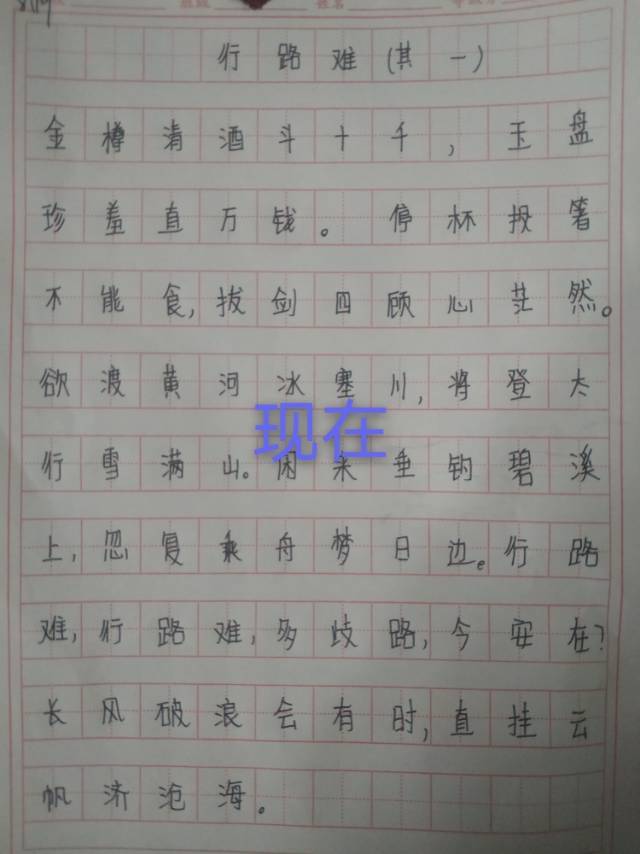 行路难(其一)
金樽清酒斗十千,玉盘
珍羞直万钱。停杯投箸
不能食,拔剑四顾心茫然。
欲渡黄河冰塞川,将登太
现在
行雪满山。闲来垂钓碧溪
上,忽复乘舟梦日边。行路
难,行路难,多歧路,今安在?
长风破浪会有时,直挂云
帆济沧海。